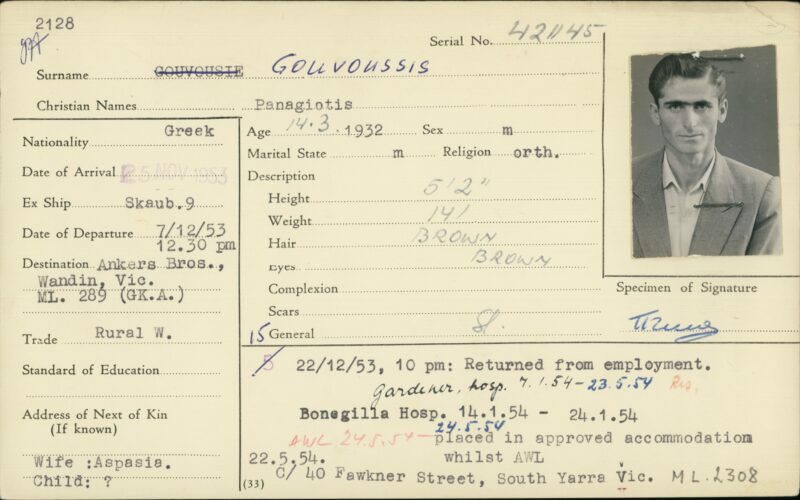 2128
Serial No. 421145
Surname GOUVOUSIE GOUVOUSSIS
Christian Names Panagiotis
Nationality Greek
Date of Arrival 25 NOV 1953
Ex Ship Skaub.9
Date of Departure 7/12/53
12.30 pm
Destination Ankers Bros.,
Wandin, Vic.
ML. 289 (GK.A.)
Trade Rural W.
Standard of Education
Address of Next of Kin
(If known)
Wife :Aspasia.
Child: ?
Age 14.3.1932 Sex m
Marital State m Religion orth.
Description
Height 5'2"
Weight 141
Hair BROWN
Eyes BROWN
Complexion
Scars
15 General St.
Specimen of Signature
5 22/12/53, 10 pm: Returned from employment.
Gardener, hosp. 7.1.54 - 23.5.54 Res.
Bonegilla Hosp. 14.1.54 - 24.1.54
24.5.54
AWL 24.5.54 - placed in approved accommodation
22.5.54. whilst AWL
C/ 40 Fawkner Street, South Yarra Vic. ML.2308
(33)